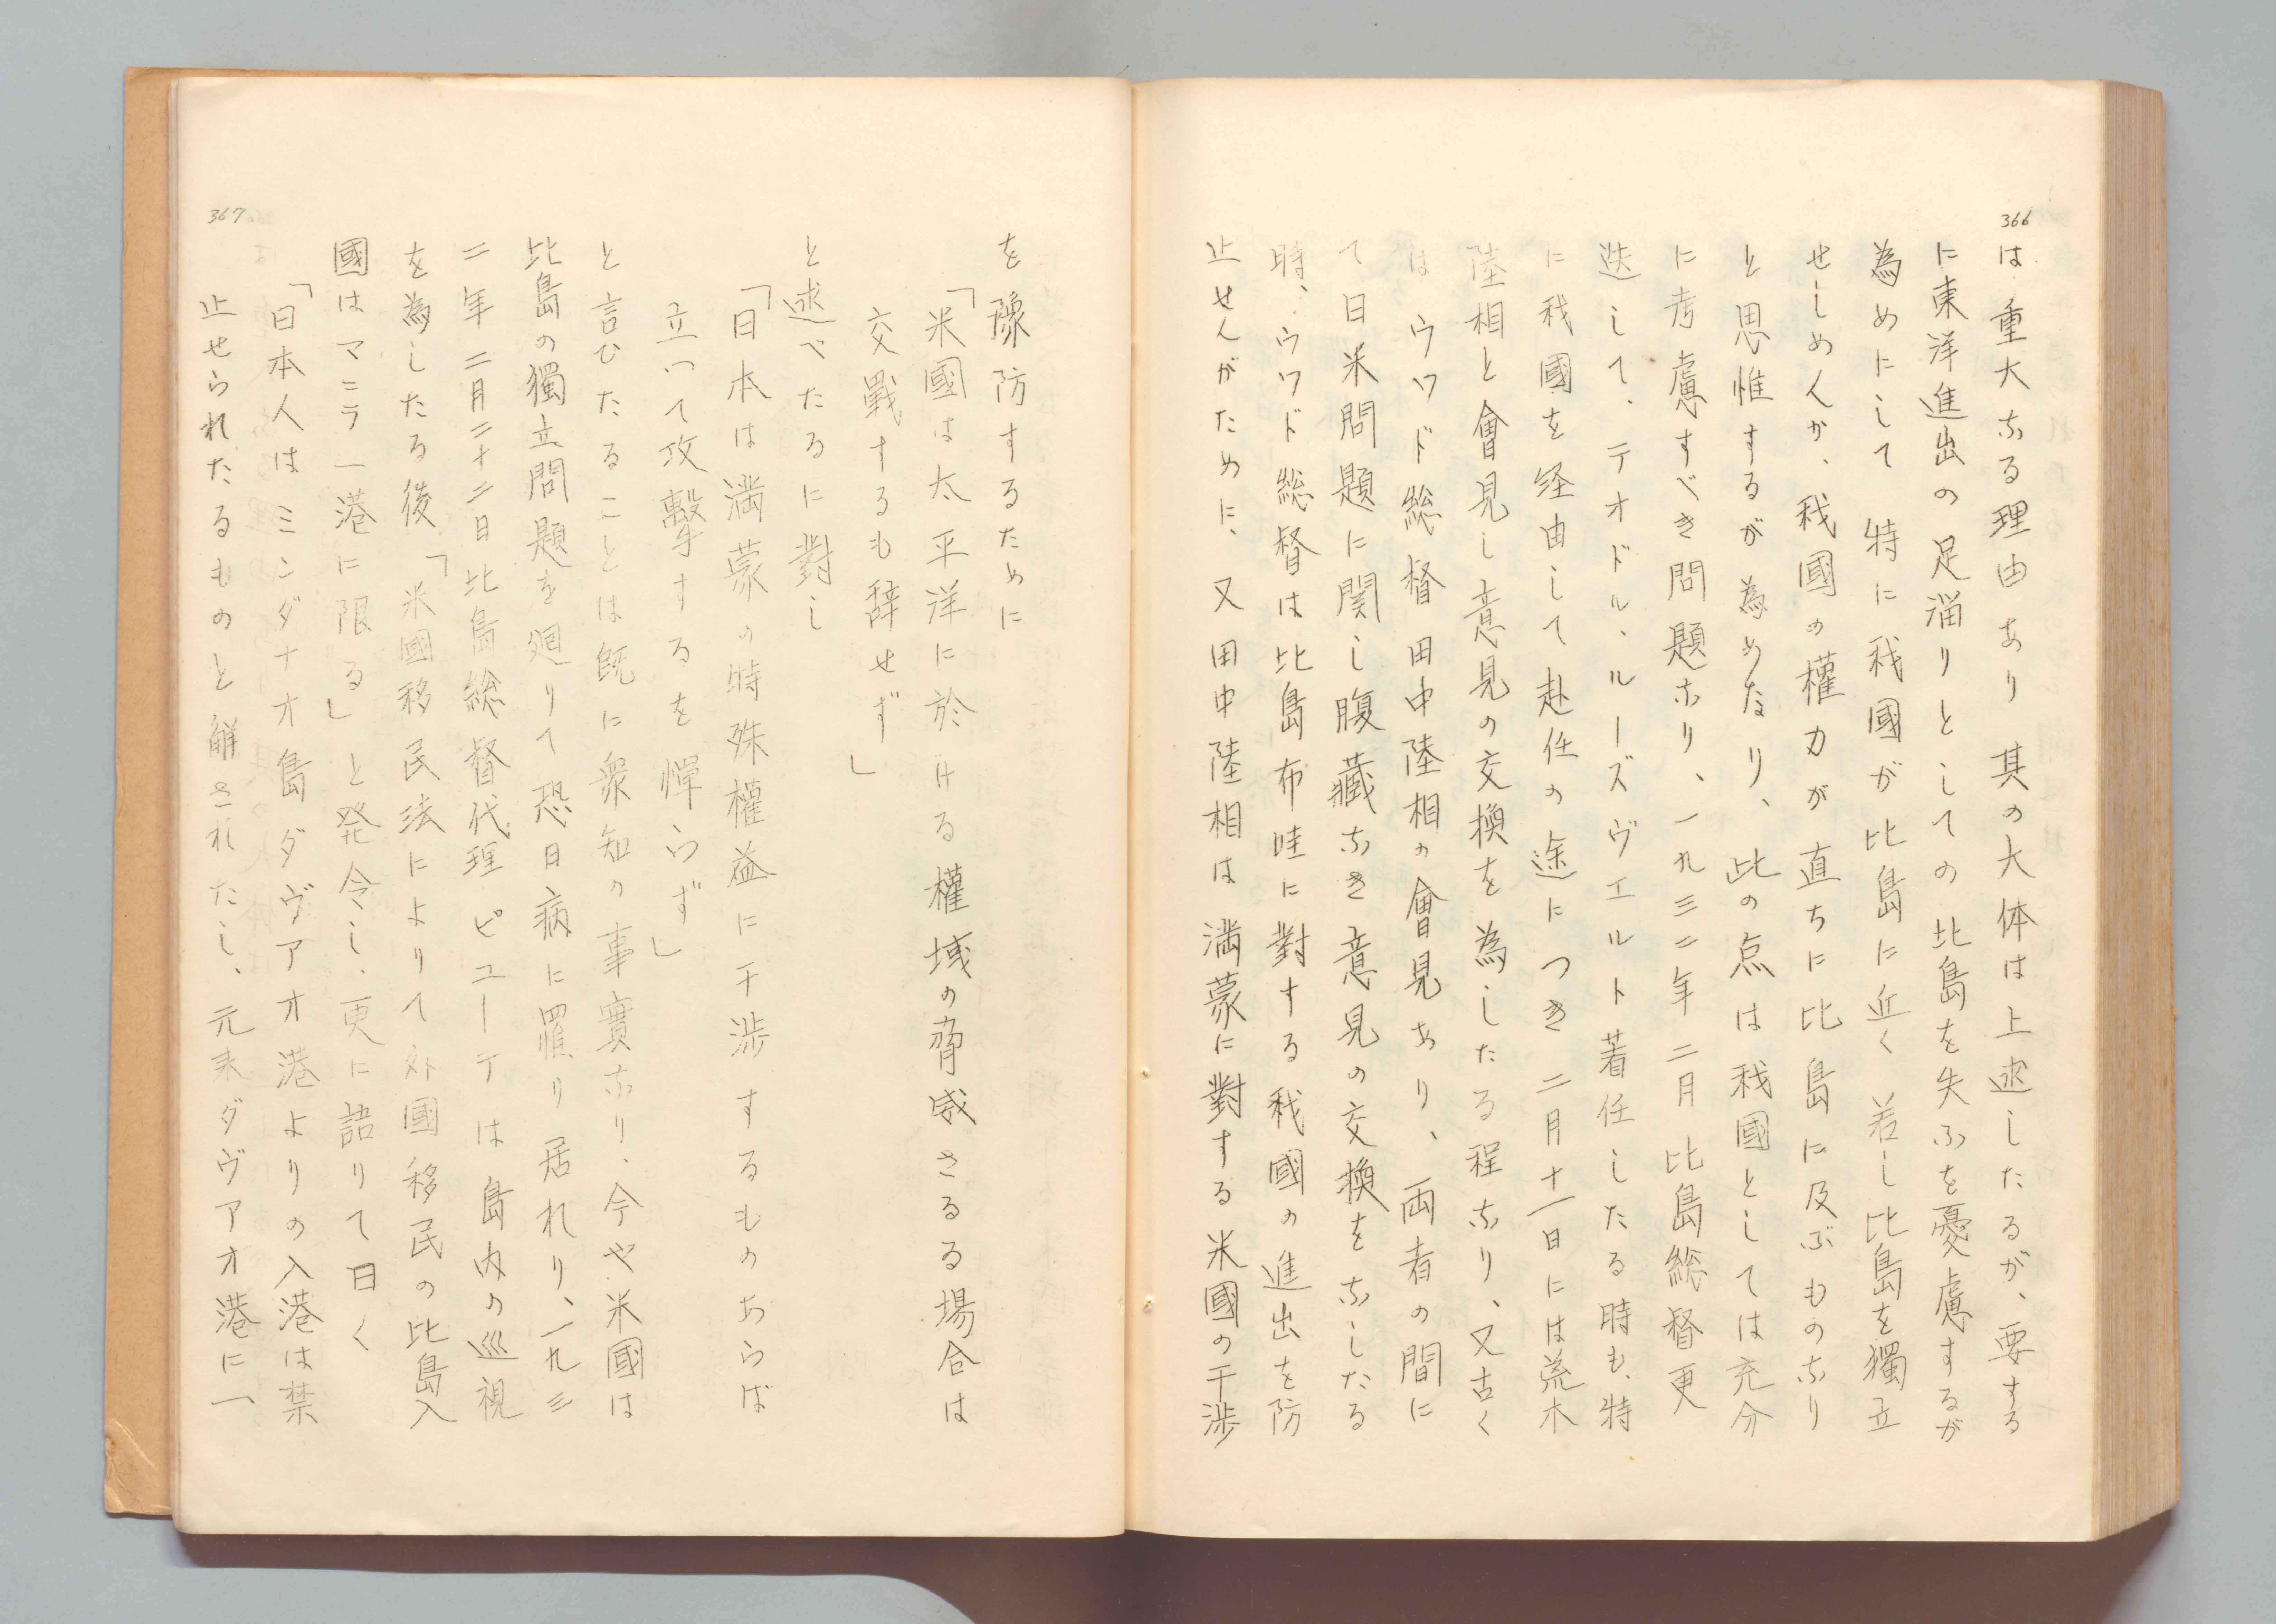 366
は重大なる理由あり 其の大体は上述したるが、要する
に東洋進出の足溜りとしての比島を失ふを憂慮するが
為めにして 特に我國が比島に近く 若し比島を獨立
せしめんか、我國の權力が直ちに比島に及ぶものなり
と思惟するが為めなり、此の点は我國としては充分
に考慮すべき問題なり、一九三二年二月比島総督更
迭して、テオドル、ルーズヴェルト着任したる時も、特
に我國を経由して赴任の途につき 二月十一日には荒木
陸相と會見し意見の交換を為したる程なり、又古く
はウワド総督田中陸相の會見あり、両者の間に
て日米問題に関し腹蔵なき意見の交換をなしたる
時、ウワド総督は比島布哇に對する我國の進出を防
止せんがために、又田中陸相は満蒙に對する米國の干渉
367
を豫防するために
「米國は太平洋に於ける權域の脅威さるる場合は
交戰するも辞せず」
と述べたるに對し
「日本は満蒙の特殊權益に干渉するものあらば
立つて攻擊するを憚らず」
と言ひたることは既に衆知の事實なり、今や米國は
比島の獨立問題を廻りて恐日病に罹り居れり、一九三
二年二月二十二日比島総督代理ピューテは島内の巡視
を為したる後「米國移民法によりて外國移民の比島入
國はマニラ一港に限る」と発令し、更に語りて曰く
「日本人はミンダナオ島ダヴァオ港よりの入港は禁
止せられたるものと解されたし、元来ダヴァオ港に一